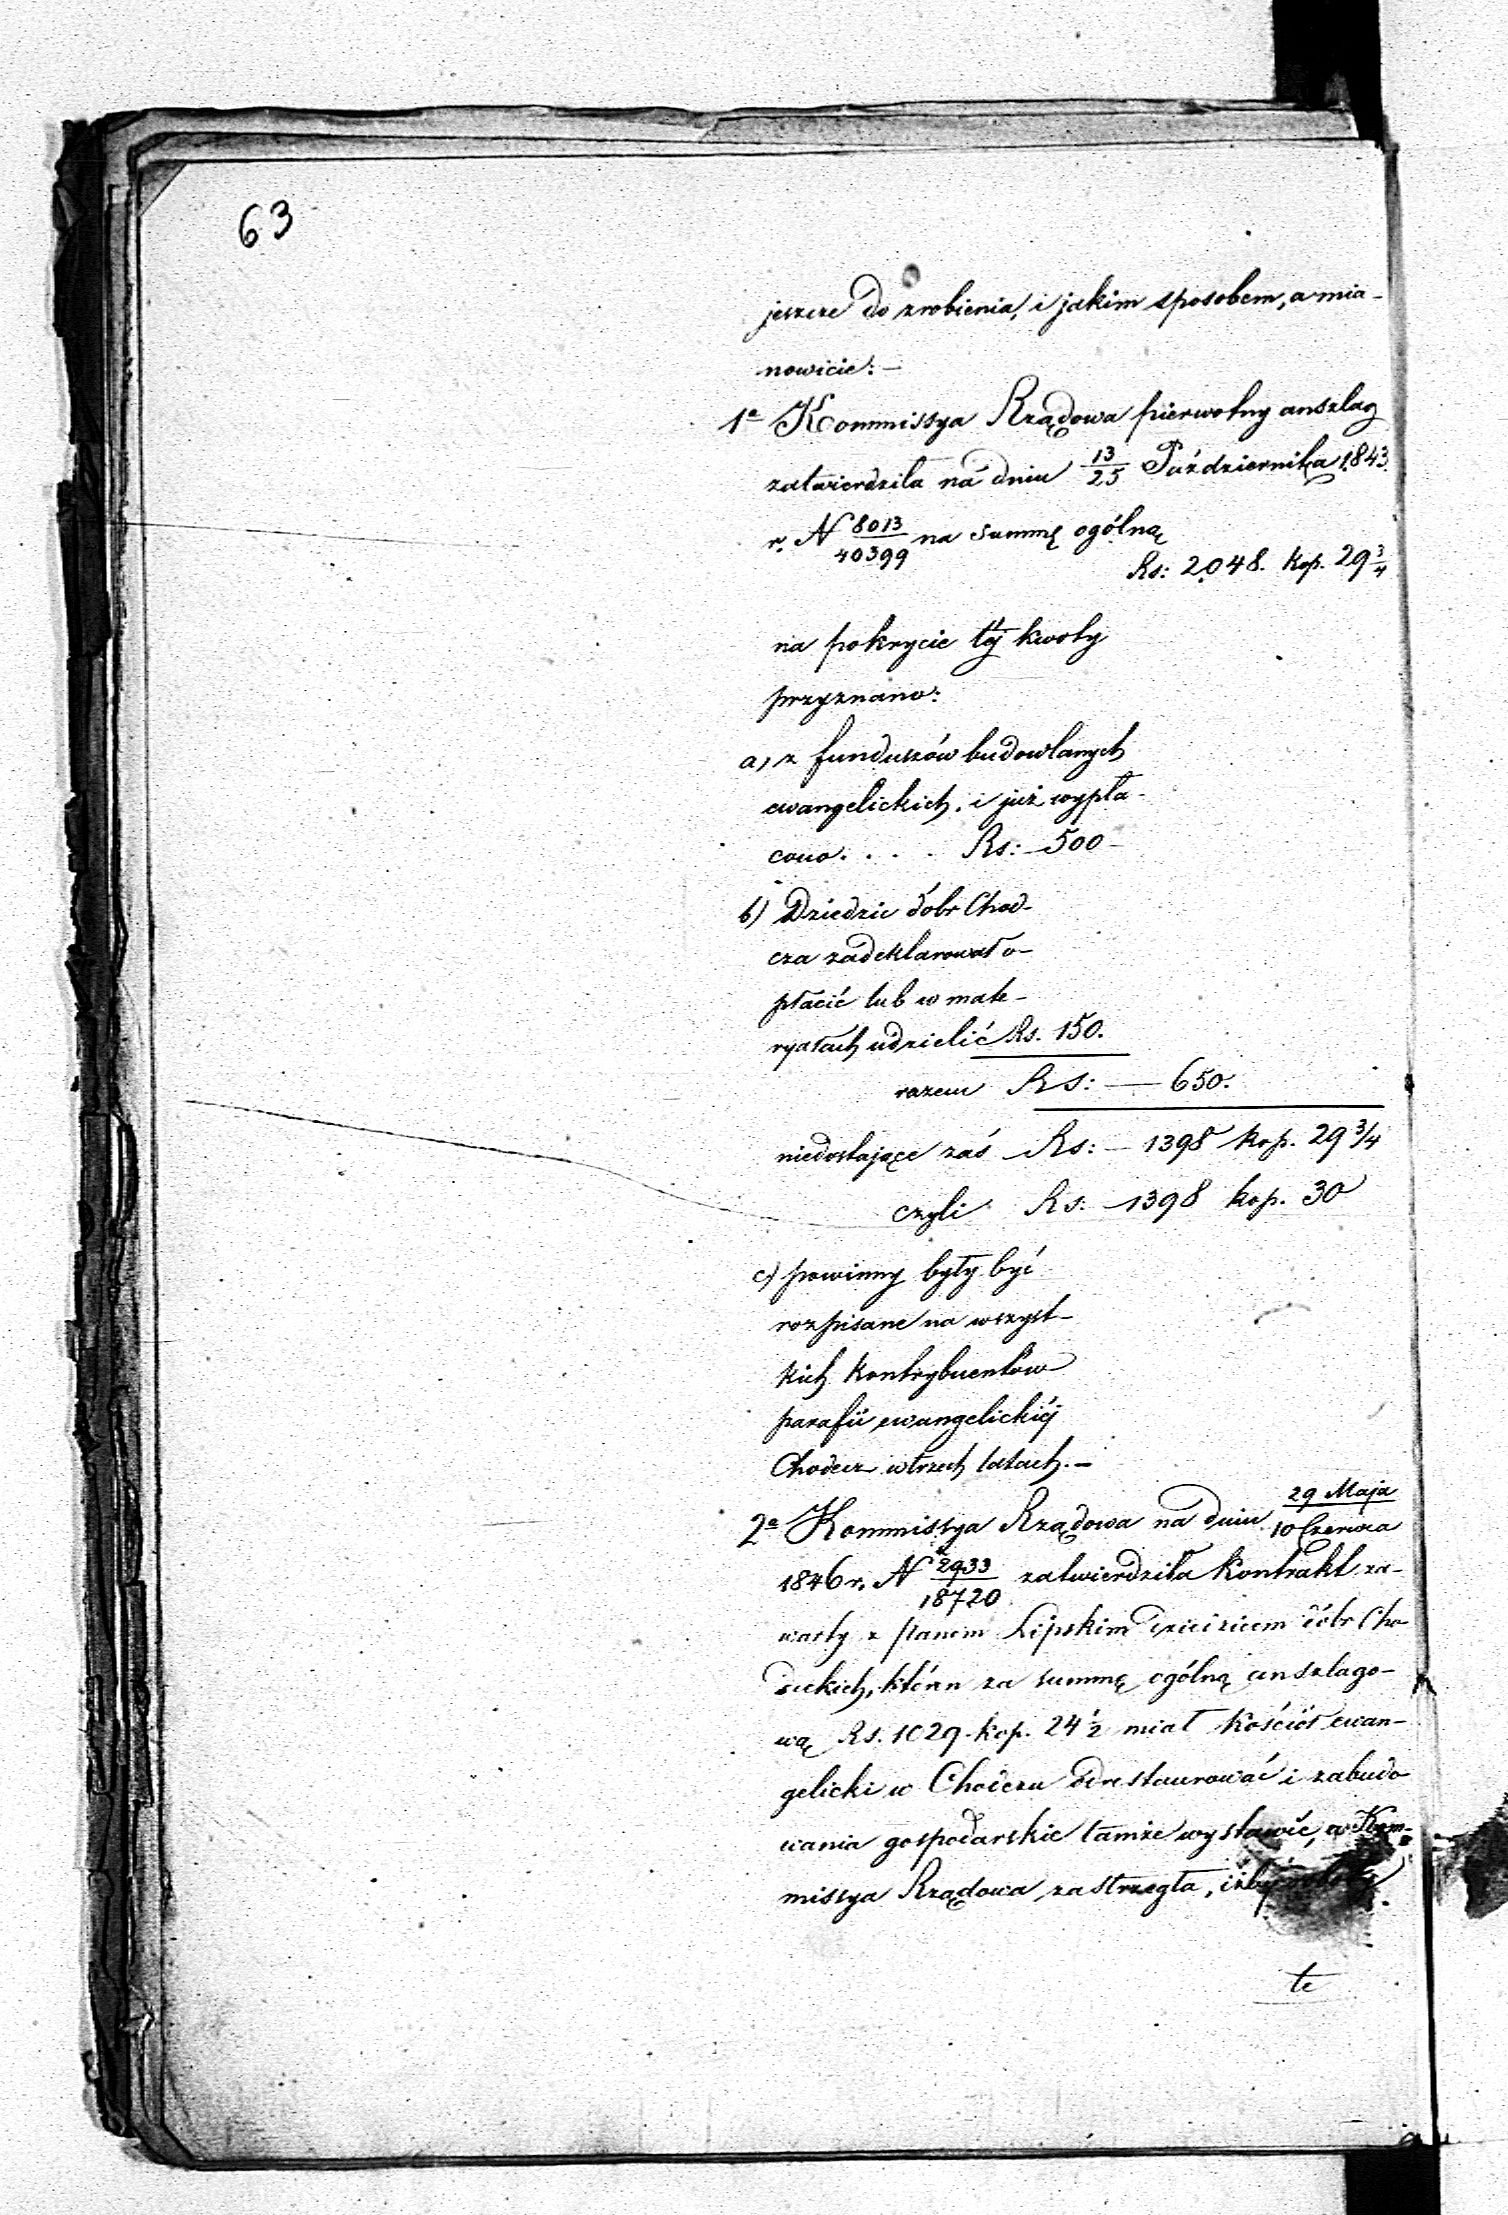 63
jeszcze do zrobienia, i jakim sposobem, a mia-
nowicie: —
1e Kommissya Rządowa pierwotny anszlag
zatwierdziła na dniu 13/25 Października 1843
r. N 8013/40399 na summę ogólną
Rs: 2048. kop. 29 3/4
na pokrycie téj kwoty
przyznano:
a, z funduszów budowlanych
ewangelickich, i już wypła-
cono. . . . Rs: — 500 —
b) Dziedzic dóbr Chod-
cza zadeklarował o-
płacić lub w mate-
ryałach udzielić Rs. 150.
razem Rs: — 650.
niedostające zaś Rs: — 1398 kop. 29 3/4
czyli Rs: — 1398 kop. 30
c) powinny były być
rozpisane na wszyst-
kich kontrybuentów
parafii ewangelickiéj
Chodecz w trzech latach. —
2e Kommissya Rządowa na dniu 29 Maja/10 Czerwca
1846 r. N 2933/18720 zatwierdziła kontrakt za-
warty z panem Lipskim dziedzicem dóbr Cho
deckich, którn za summę ogólną anszlago-
wą Rs. 1029 kop. 24 1/2 miał kościół ewan-
gelicki w Chodczu odrestaurować i zabudo
wania gospodarskie tamże wystawić, a Kom-
missya Rządowa zastrzegła, iżby
te